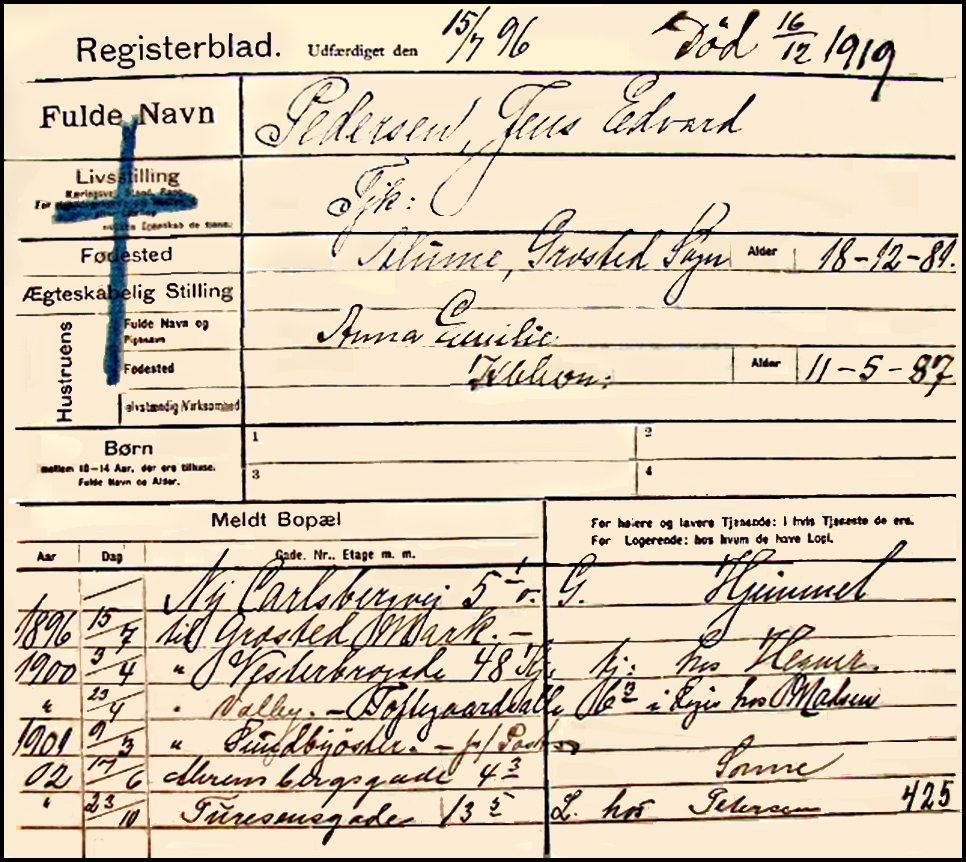 Registerblad. Udfærdiget den 15/7 96 Død 16/12 1919
Fulde Navn Pedersen, Jens Edvard
Livsstilling Tjk:
Fødested Grosted Sogn Alder 18-12-81.
Ægteskabelig Stilling
Hustruens
Fulde Navn og Pigenavn Anna Emilie
Fødested Kbhvn: Alder 11-5-87
selvstændig Virksomhed
Børn 1 2
mellem 10-14 Aar, der ere tilhuse.
Fulde Navn og Alder. 3 4
Meldt Bopæl For højere og lavere Tjenende: i hvis Tjeneste de ere.
For Logerende: hos hvem de have Logi.
Aar Dag Gade. Nr., Etage m. m.
Ny Carlsbergvej 5 1/o. G. Hjemmet
1896 15/7 til Grosted Mark. -
1900 3/4 " Vesterbrogade 48 tj: hos
" 23/4 " Valby. - Toftegaards Alle 16 3 i Logis hos Madsen
1901 9/3 " Sundbyøster. -
02 17/6 4 3 Somme
" 23/10 Turesensgade 13 5 L. hos Petersen 425